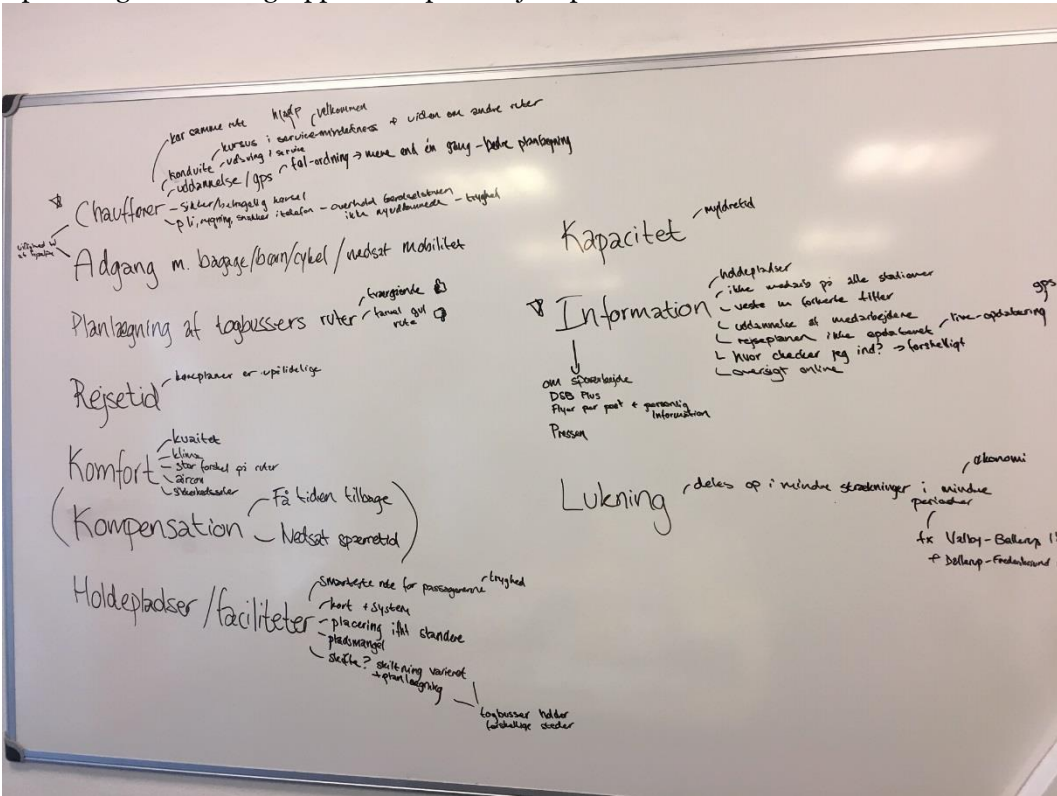 kør samme rute
hjælp velkommen
kursus i service-mindedness + viden om andre ruter
konduite udsving i service
uddannelse/gps føl-ordning → mere end én gang - bedre planlægning
Chauffører - sikker/behagelig kørsel
pli, rygning, snakker i telefon - overhold færdselsloven
ikke nyuddannede - tryghed
Adgang m. bagage/børn/cykel/nedsat mobilitet
Planlægning af togbussers ruter
tværgående
rute
Rejsetid
køreplaner er upålidelige
Komfort
kvalitet
klima
stor forskel på ruter
aircon
sikkerhedsseler
(Kompensation - Få tiden tilbage
Nedsat spærretid)
Holdepladser/faciliteter
smarteste rute for passagererne - tryghed
kort + system
placering ifht standere
pladsmangel
skifte? skiltning varieret
+ planlægning
togbusser holder
forskellige steder
Kapacitet
myldretid
Information
holdepladser
ikke medarb på alle stationer
veste m forkerte titler
uddannelse af medarbejdere
rejseplanen ikke opdateret / live-opdatering
gps
hvor checker jeg ind? → forskelligt
oversigt online
om sporarbejde
DSB Plus
Flyer per post + personlig
information
Pressen
Lukning
deles op i mindre strækninger i mindre
perioder
økonomi
fx Valby-Ballerup
+ Ballerup-Frederikssund